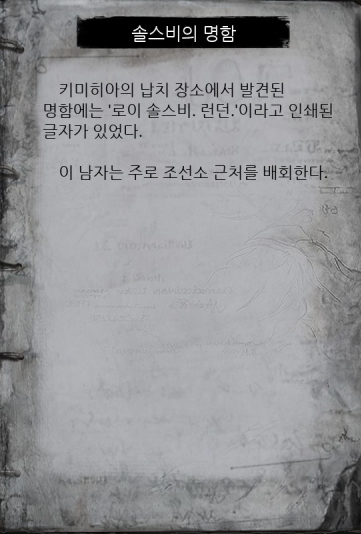 솔스비의 명함
키미히아의 납치 장소에서 발견된
명함에는 '로이 솔스비. 런던.'이라고 인쇄된
글자가 있었다.
이 남자는 주로 조선소 근처를 배회한다.